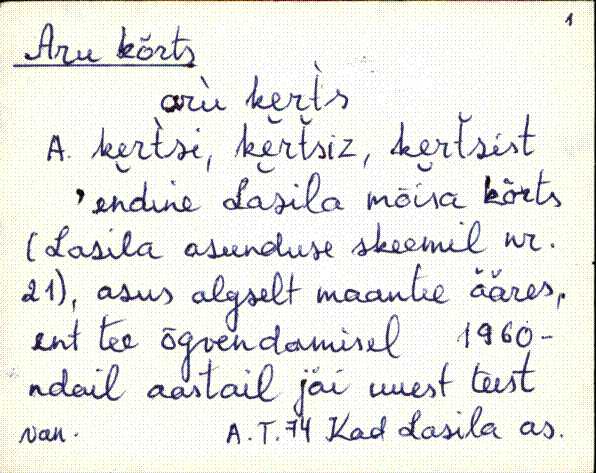 1
Aru kõrts
arù ke̮rt̀s
A. ke̮rt̀si, ke̮rt̆siz, ke̮rt̆sist
'endine Lasila mõisa kõrts
(Lasila asunduse skeemil nr.
21), asus algselt maantee ääres,
ent tee õgvendamisel 1960-
ndail aastail jäi uuest teest
A.T.74 Kad Lasila as.